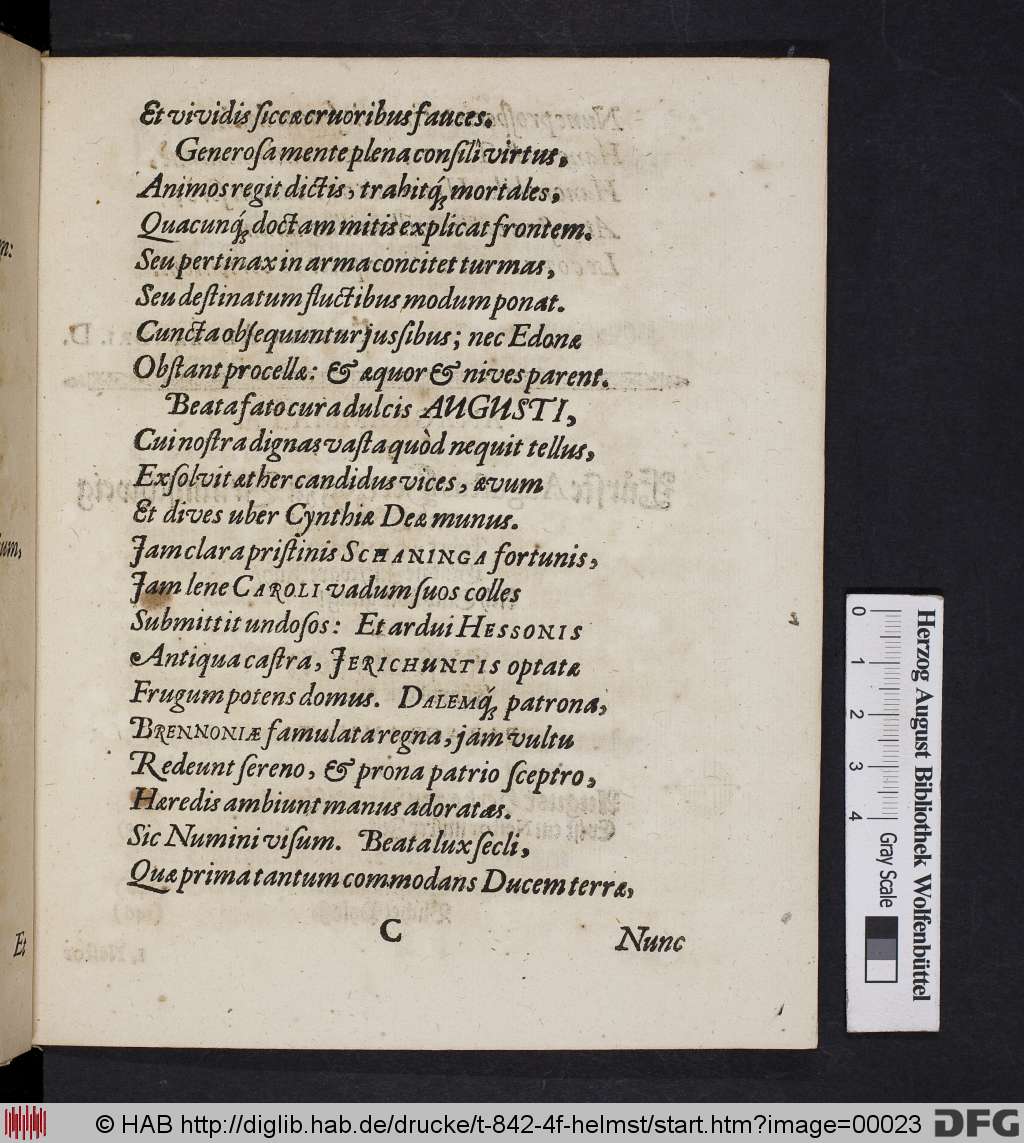 Et vividis siccæ cruoribus fauces.
Generosa mente plena consilî virtus,
Animos regit dictis, trahitq́; mortales,
Quacunq́; doctam mitis explicat frontem.
Seu pertinax in arma concitet turmas,
Seu destinatum fluctibus modum ponat.
Cuncta obsequuntur jussibus; nec Edonæ
Obstant procellæ: & æquor & nives parent.
Beata fato cura dulcis AUGUSTI,
Cui nostra dignas vasta quòd nequit tellus,
Exsolvit æther candidus vices, ævum
Et dives uber Cynthiæ Deæ munus.
Jam clara pristinis SCHANINGA fortunis,
Jam lene CAROLI vadum suos colles
Submittit undosos: Et ardui HESSONIS
Antiqua castra, JERICHUNTIS optatæ
Frugum potens domus. DALEMq́; patrona,
BRENNONIÆ famulata regna, jam vultu
Redeunt sereno, & prona patrio sceptro,
Hæredis ambiunt manus adoratæs.
Sic Numini visum. Beata lux secli,
Quæ prima tantum commodans Ducem terræ,
C
Nunc
um,
Et
0 1 2 3 4
Herzog August Bibliothek Wolfenbüttel
Gray Scale
© HAB http://diglib.hab.de/drucke/t-842-4f-helmst/start.htm?image=00023
DFG